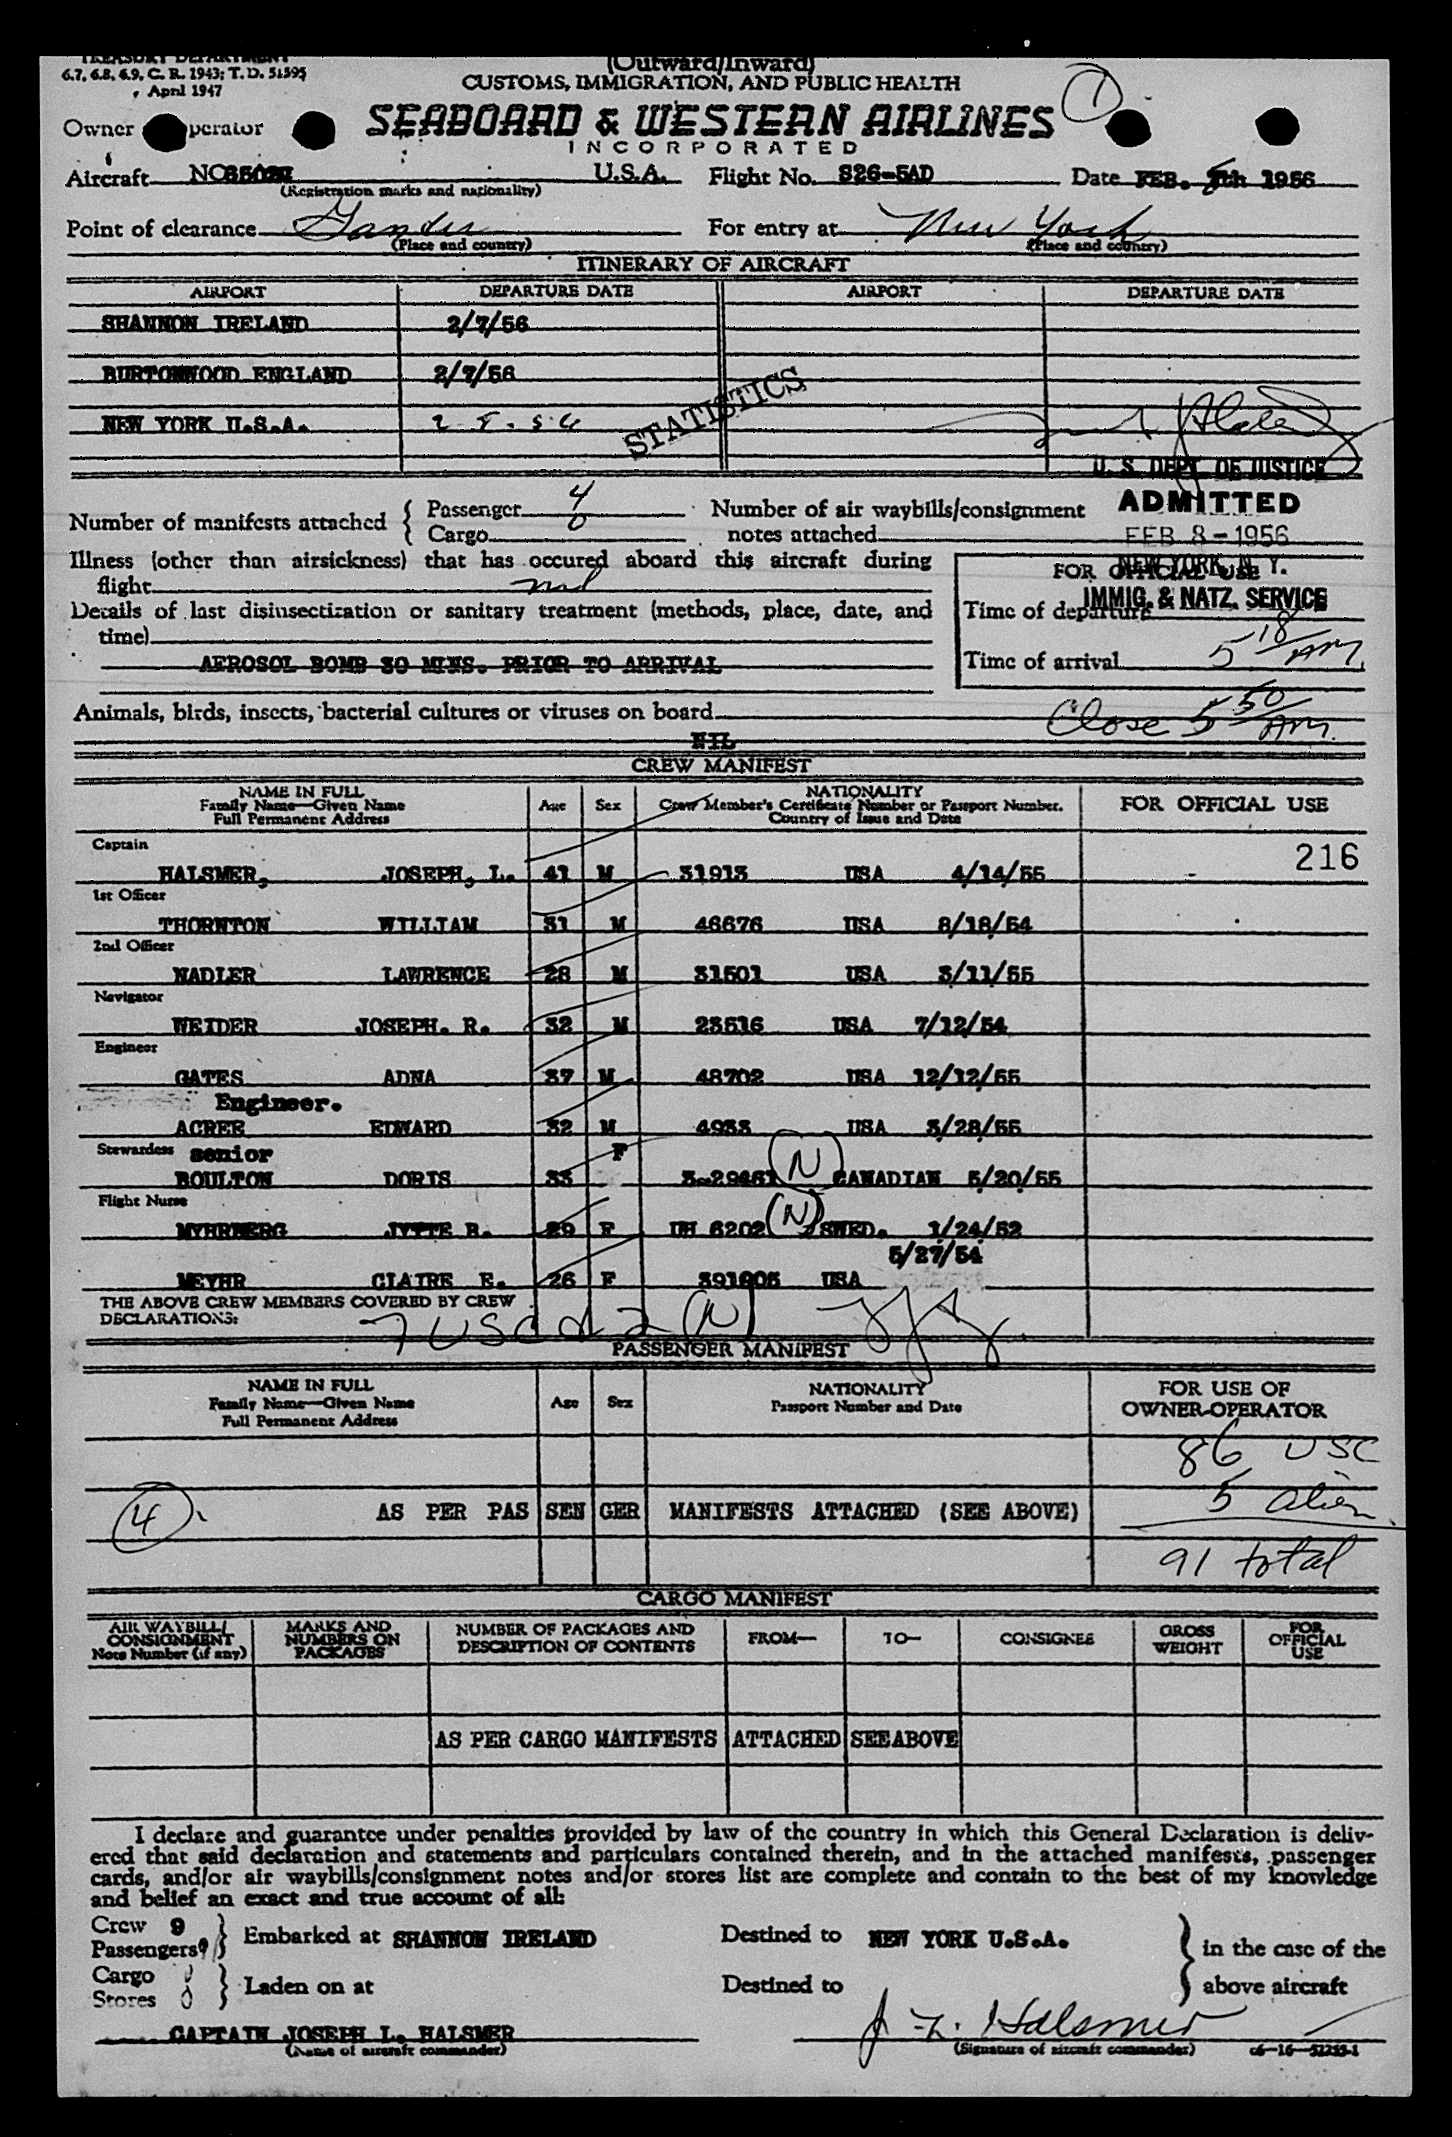 TREASURY DEPARTMENT
6.7, 6.8, 6.9, C. R. 1943; T. D. 51595
April 1947
(Outward/Inward)
CUSTOMS, IMMIGRATION, AND PUBLIC HEALTH
1
Owner Operator
SEABOARD & WESTERN AIRLINES
INCORPORATED
Aircraft U.S.A. Flight No. S26-5AD Date FEB. 8th 1956
(Registration marks and nationality)
Point of clearance Gander For entry at New York
(Place and country) (Place and country)
ITINERARY OF AIRCRAFT
AIRPORT DEPARTURE DATE AIRPORT DEPARTURE DATE
SHANNON IRELAND 2/7/56
BURTONWOOD ENGLAND 2/7/56
STATISTICS
NEW YORK U.S.A. 2 8 . 56
U. S. DEPT. OF JUSTICE
ADMITTED
FEB 8-1956
NEW YORK, N. Y.
IMMIG. & NATZ. SERVICE
Number of manifests attached { Passenger 4 Number of air waybills/consignment
Cargo 0 notes attached
Illness (other than airsickness) that has occured aboard this aircraft during
flight nil
FOR OFFICIAL USE
Details of last disinsectization or sanitary treatment (methods, place, date, and
time)
Time of departure
AEROSOL BOMB 30 MINS. PRIOR TO ARRIVAL
Time of arrival 5 18 AM
Animals, birds, insects, bacterial cultures or viruses on board
Close 5 50 AM.
NIL
CREW MANIFEST
NAME IN FULL
Family Name—Given Name
Full Permanent Address
Age Sex
NATIONALITY
Crew Member's Certificate Number or Passport Number.
Country of Issue and Date
FOR OFFICIAL USE
216
Captain
HALSMER, JOSEPH, L. 41 M 31913 USA 4/14/55
1st Officer
THORNTON WILLIAM 31 M 46676 USA 8/18/54
2nd Officer
NADLER LAWRENCE 28 M 31501 USA 3/11/55
Navigator
WEIDER JOSEPH. R. 32 M 23516 USA 7/12/54
Engineer
GATES ADNA 37 M 48702 USA 12/12/55
Engineer.
ACREE EDWARD 32 M 4933 USA 3/28/55
Stewardess senior F
BOULTON DORIS 33 3-29461 (N) CANADIAN 5/20/55
Flight Nurse
MYHRBERG JYTTE B. 29 F UH 6202 (N) SWED. 1/24/52
5/27/54
MEYHR CLAIRE E. 26 F 391905 USA
THE ABOVE CREW MEMBERS COVERED BY CREW
DECLARATIONS:
7 USC 2 (N)
PASSENGER MANIFEST
NAME IN FULL
Family Name—Given Name
Full Permanent Address
Age Sex
NATIONALITY
Passport Number and Date
FOR USE OF
OWNER-OPERATOR
86 USC
5 alien
(4) AS PER PAS SEN GER MANIFESTS ATTACHED (SEE ABOVE)
91 total
CARGO MANIFEST
AIR WAYBILL/
CONSIGNMENT
Note Number (if any)
MARKS AND
NUMBERS ON
PACKAGES
NUMBER OF PACKAGES AND
DESCRIPTION OF CONTENTS
FROM— TO— CONSIGNEE
GROSS
WEIGHT
FOR
OFFICIAL
USE
AS PER CARGO MANIFESTS ATTACHED SEE ABOVE
I declare and guarantee under penalties provided by law of the country in which this General Declaration is deliv-
ered that said declaration and statements and particulars contained therein, and in the attached manifests, passenger
cards, and/or air waybills/consignment notes and/or stores list are complete and contain to the best of my knowledge
and belief an exact and true account of all:
Crew 9
Passengers 91
Embarked at SHANNON IRELAND Destined to NEW YORK U.S.A.
in the case of the
Cargo 0
Stores 0
Laden on at Destined to above aircraft
CAPTAIN JOSEPH L. HALSMER J. L. Halsmer
(Name of aircraft commander) (Signature of aircraft commander) c6—16—52255-1